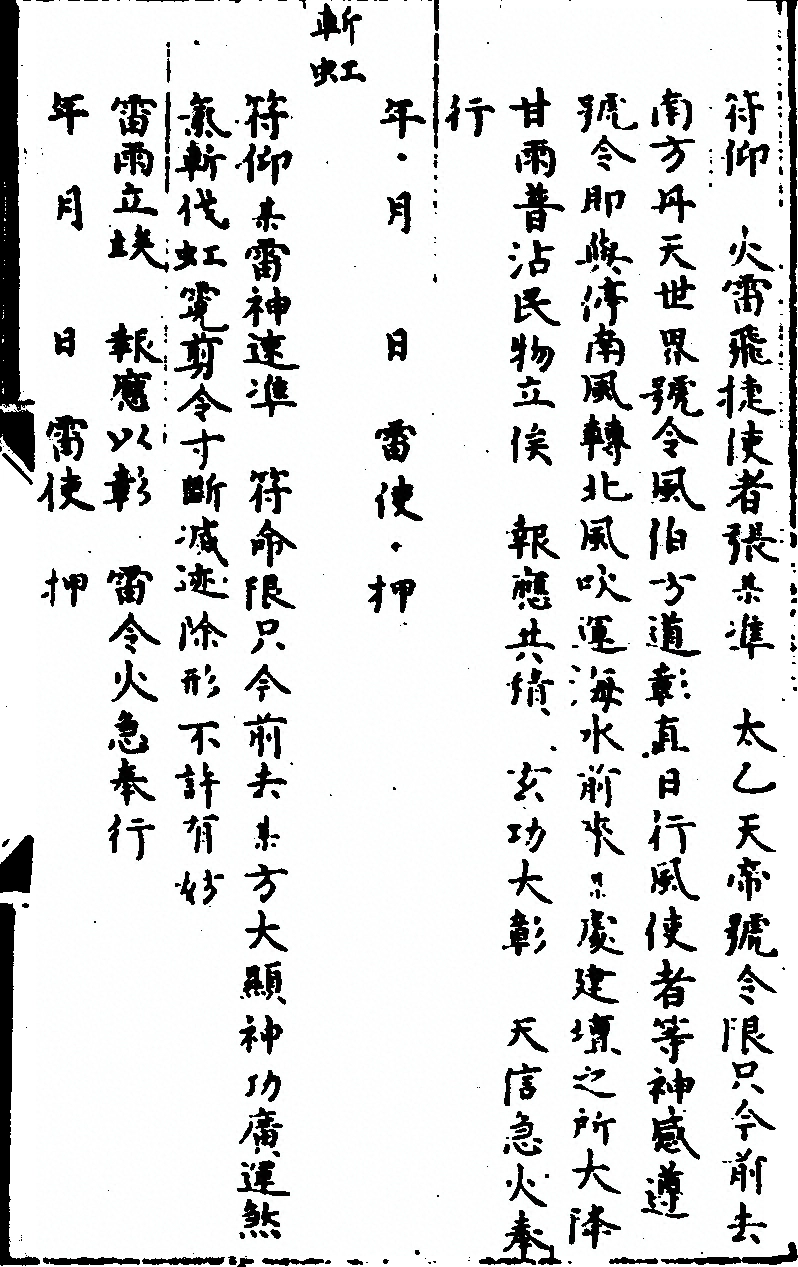 符仰　火雷飛捷使者張某準　太乙天帝號令限只今前去
南方丹天世界號令風伯方道彰直日行風使者等神咸遵
號令即與停南風轉北風吹運海水前來某處建壇之所大降
甘雨普沾民物立俟　報應共積　玄功大彰　天信急火奉
行
年　月　日　雷使　押
斬虹
符仰某雷神速準　符命限只今前去某方大顯神功廣運煞
炁斬伐虹霓剪令寸斷滅迹除形不許有妨
雷雨立俟　報應以彰　雷令火急奉行
年　月　日　雷使　押